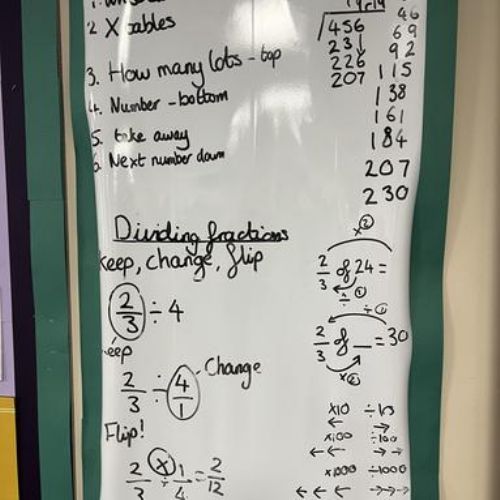 2 X tables
3. How many lots - top
4. Number - bottom
5. take away
6. Next number down
456
23↓
226
207
46
69
92
115
138
161
184
207
230
Dividing fractions
keep, change, flip
2/3 ÷ 4
keep
2/3 ÷ 4/1 - Change
Flip!
2/3 × 1/4 = 2/12
×②
2/3 of 24 =
÷ ①
÷①
2/3 of _ = 30
×②
×10 ÷10
← →
×100 ÷100
←← →→
×1000 ÷1000
←←← →→→